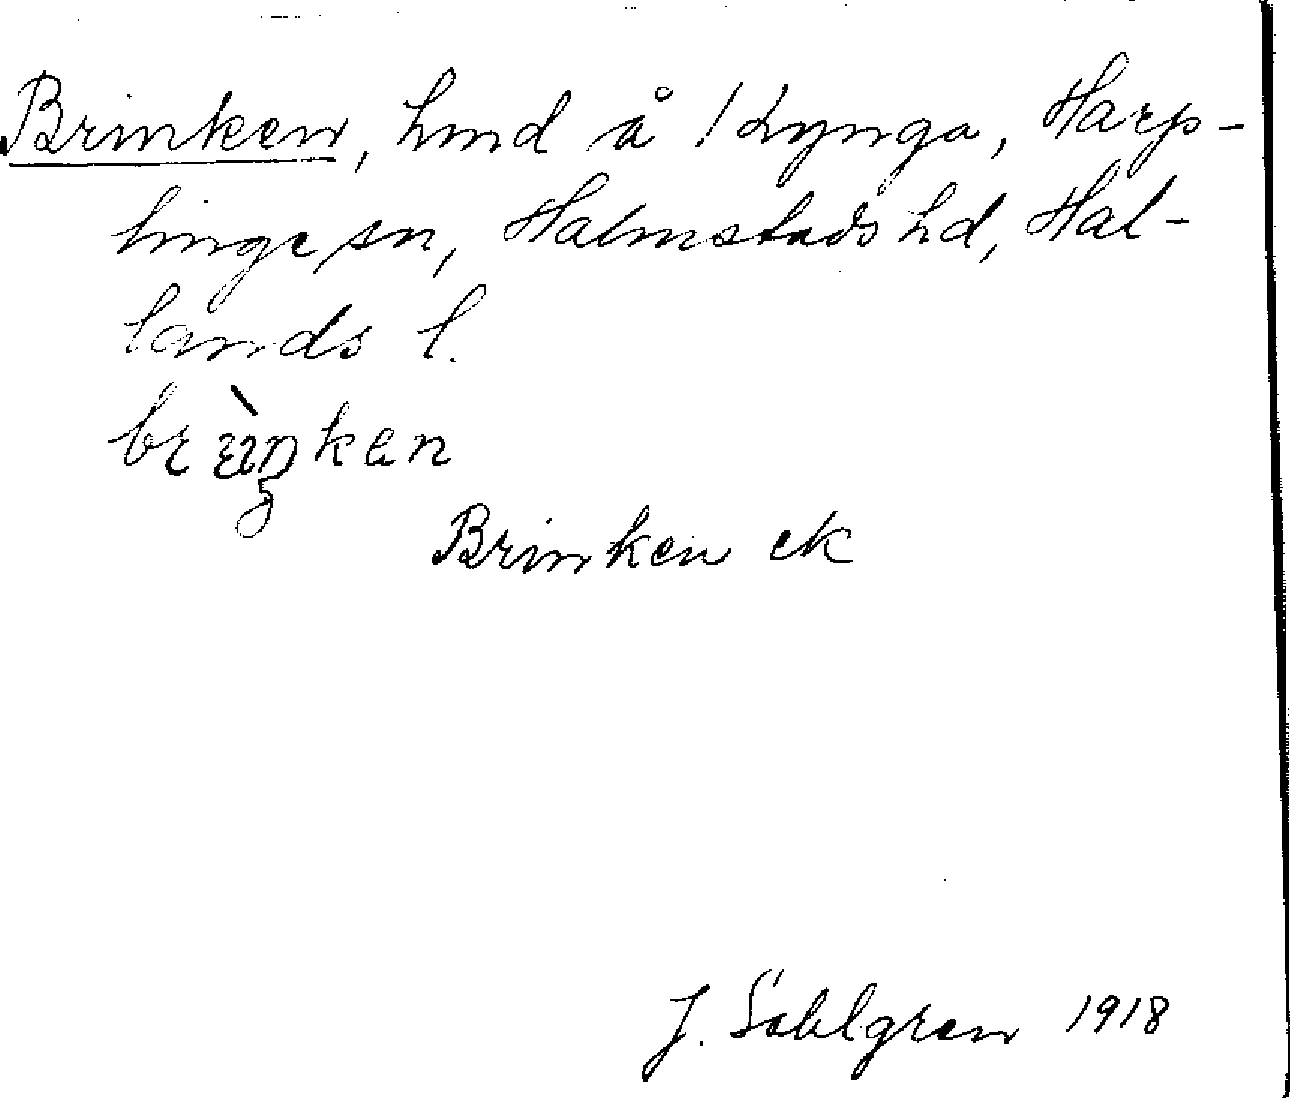 Brinken, hmd å 1 Lynga, Harp-
linge sn, Halmstads hd, Hal-
lands l.
Brinken ek
J. Sahlgren 1918